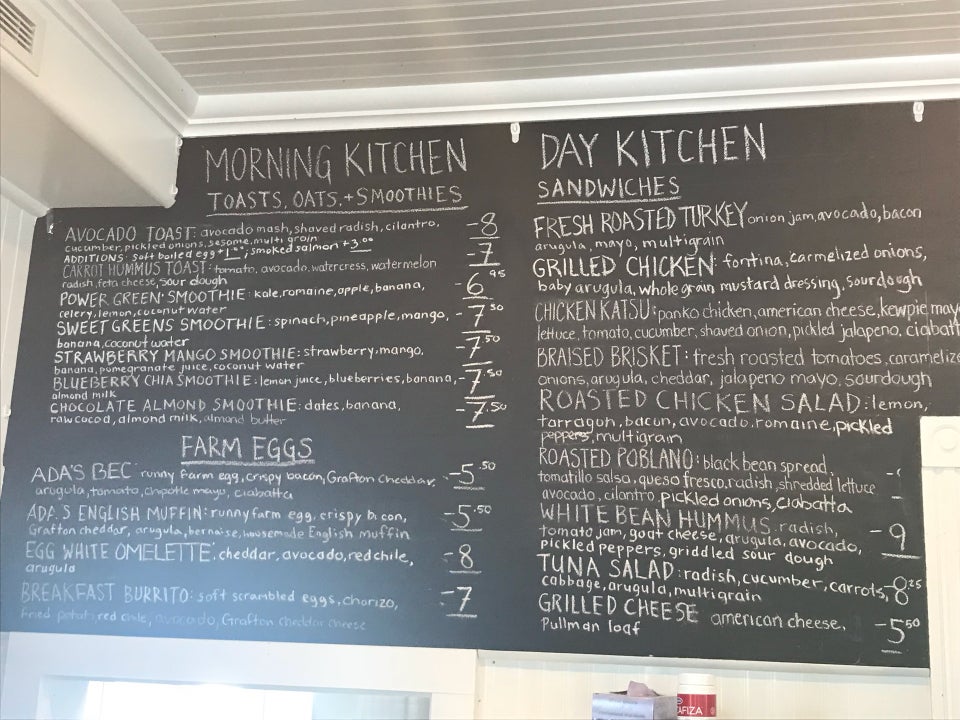 MORNING KITCHEN
TOASTS, OATS, + SMOOTHIES
AVOCADO TOAST: avocado mash, shaved radish, cilantro, -8
cucumber, pickled onions, sesome, multi grain
ADDITIONS: soft boiled egg +1.00; smoked salmon +3.00 -7
CARROT HUMMUS TOAST: tomato, avocado, watercress, watermelon
radish, feta cheese, sour dough
POWER GREEN SMOOTHIE: kale, romaine, apple, banana, -6.95
celery, lemon, coconut water
SWEET GREENS SMOOTHIE: spinach, pineapple, mango, -7.50
banana, coconut water
STRAWBERRY MANGO SMOOTHIE: strawberry, mango, -7.50
banana, pomegranate juice, coconut water
BLUEBERRY CHIA SMOOTHIE: lemon juice, blueberries, banana, -7.50
almond milk
CHOCOLATE ALMOND SMOOTHIE: dates, banana, -7.50
raw cocoa, almond milk, almond butter
FARM EGGS
ADA'S BEC: runny farm egg, crispy bacon, Grafton Cheddar, -5.50
arugula, tomato, chipotle mayo, ciabatta
ADA'S ENGLISH MUFFIN: runny farm egg, crispy bacon, -5.50
Grafton cheddar, arugula, bernaise, housemade English muffin
EGG WHITE OMELETTE: cheddar, avocado, red chile, -8
arugula
BREAKFAST BURRITO: soft scrambled eggs, chorizo, -7
fried potato, red chile, avocado, Grafton cheddar cheese
DAY KITCHEN
SANDWICHES
FRESH ROASTED TURKEY onion jam, avocado, bacon
arugula, mayo, multigrain
GRILLED CHICKEN: fontina, carmelized onions,
baby arugula, whole grain mustard dressing, sourdough
CHICKEN KATSU: panko chicken, american cheese, kewpie mayo
lettuce, tomato, cucumber, shaved onion, pickled jalapeno, ciabatt
BRAISED BRISKET: fresh roasted tomatoes, caramelize
onions, arugula, cheddar, jalapeno mayo, sourdough
ROASTED CHICKEN SALAD: lemon,
tarragon, bacon, avocado, romaine, pickled
peppers, multigrain
ROASTED POBLANO: black bean spread,
tomatillo salsa, queso fresco, radish, shredded lettuce
avocado, cilantro, pickled onions, ciabatta
WHITE BEAN HUMMUS: radish,
tomato jam, goat cheese, arugula, avocado, -9
pickled peppers, griddled sour dough
TUNA SALAD: radish, cucumber, carrots, -8.25
cabbage, arugula, multigrain
GRILLED CHEESE american cheese, -5.50
Pullman loaf
CAFIZA